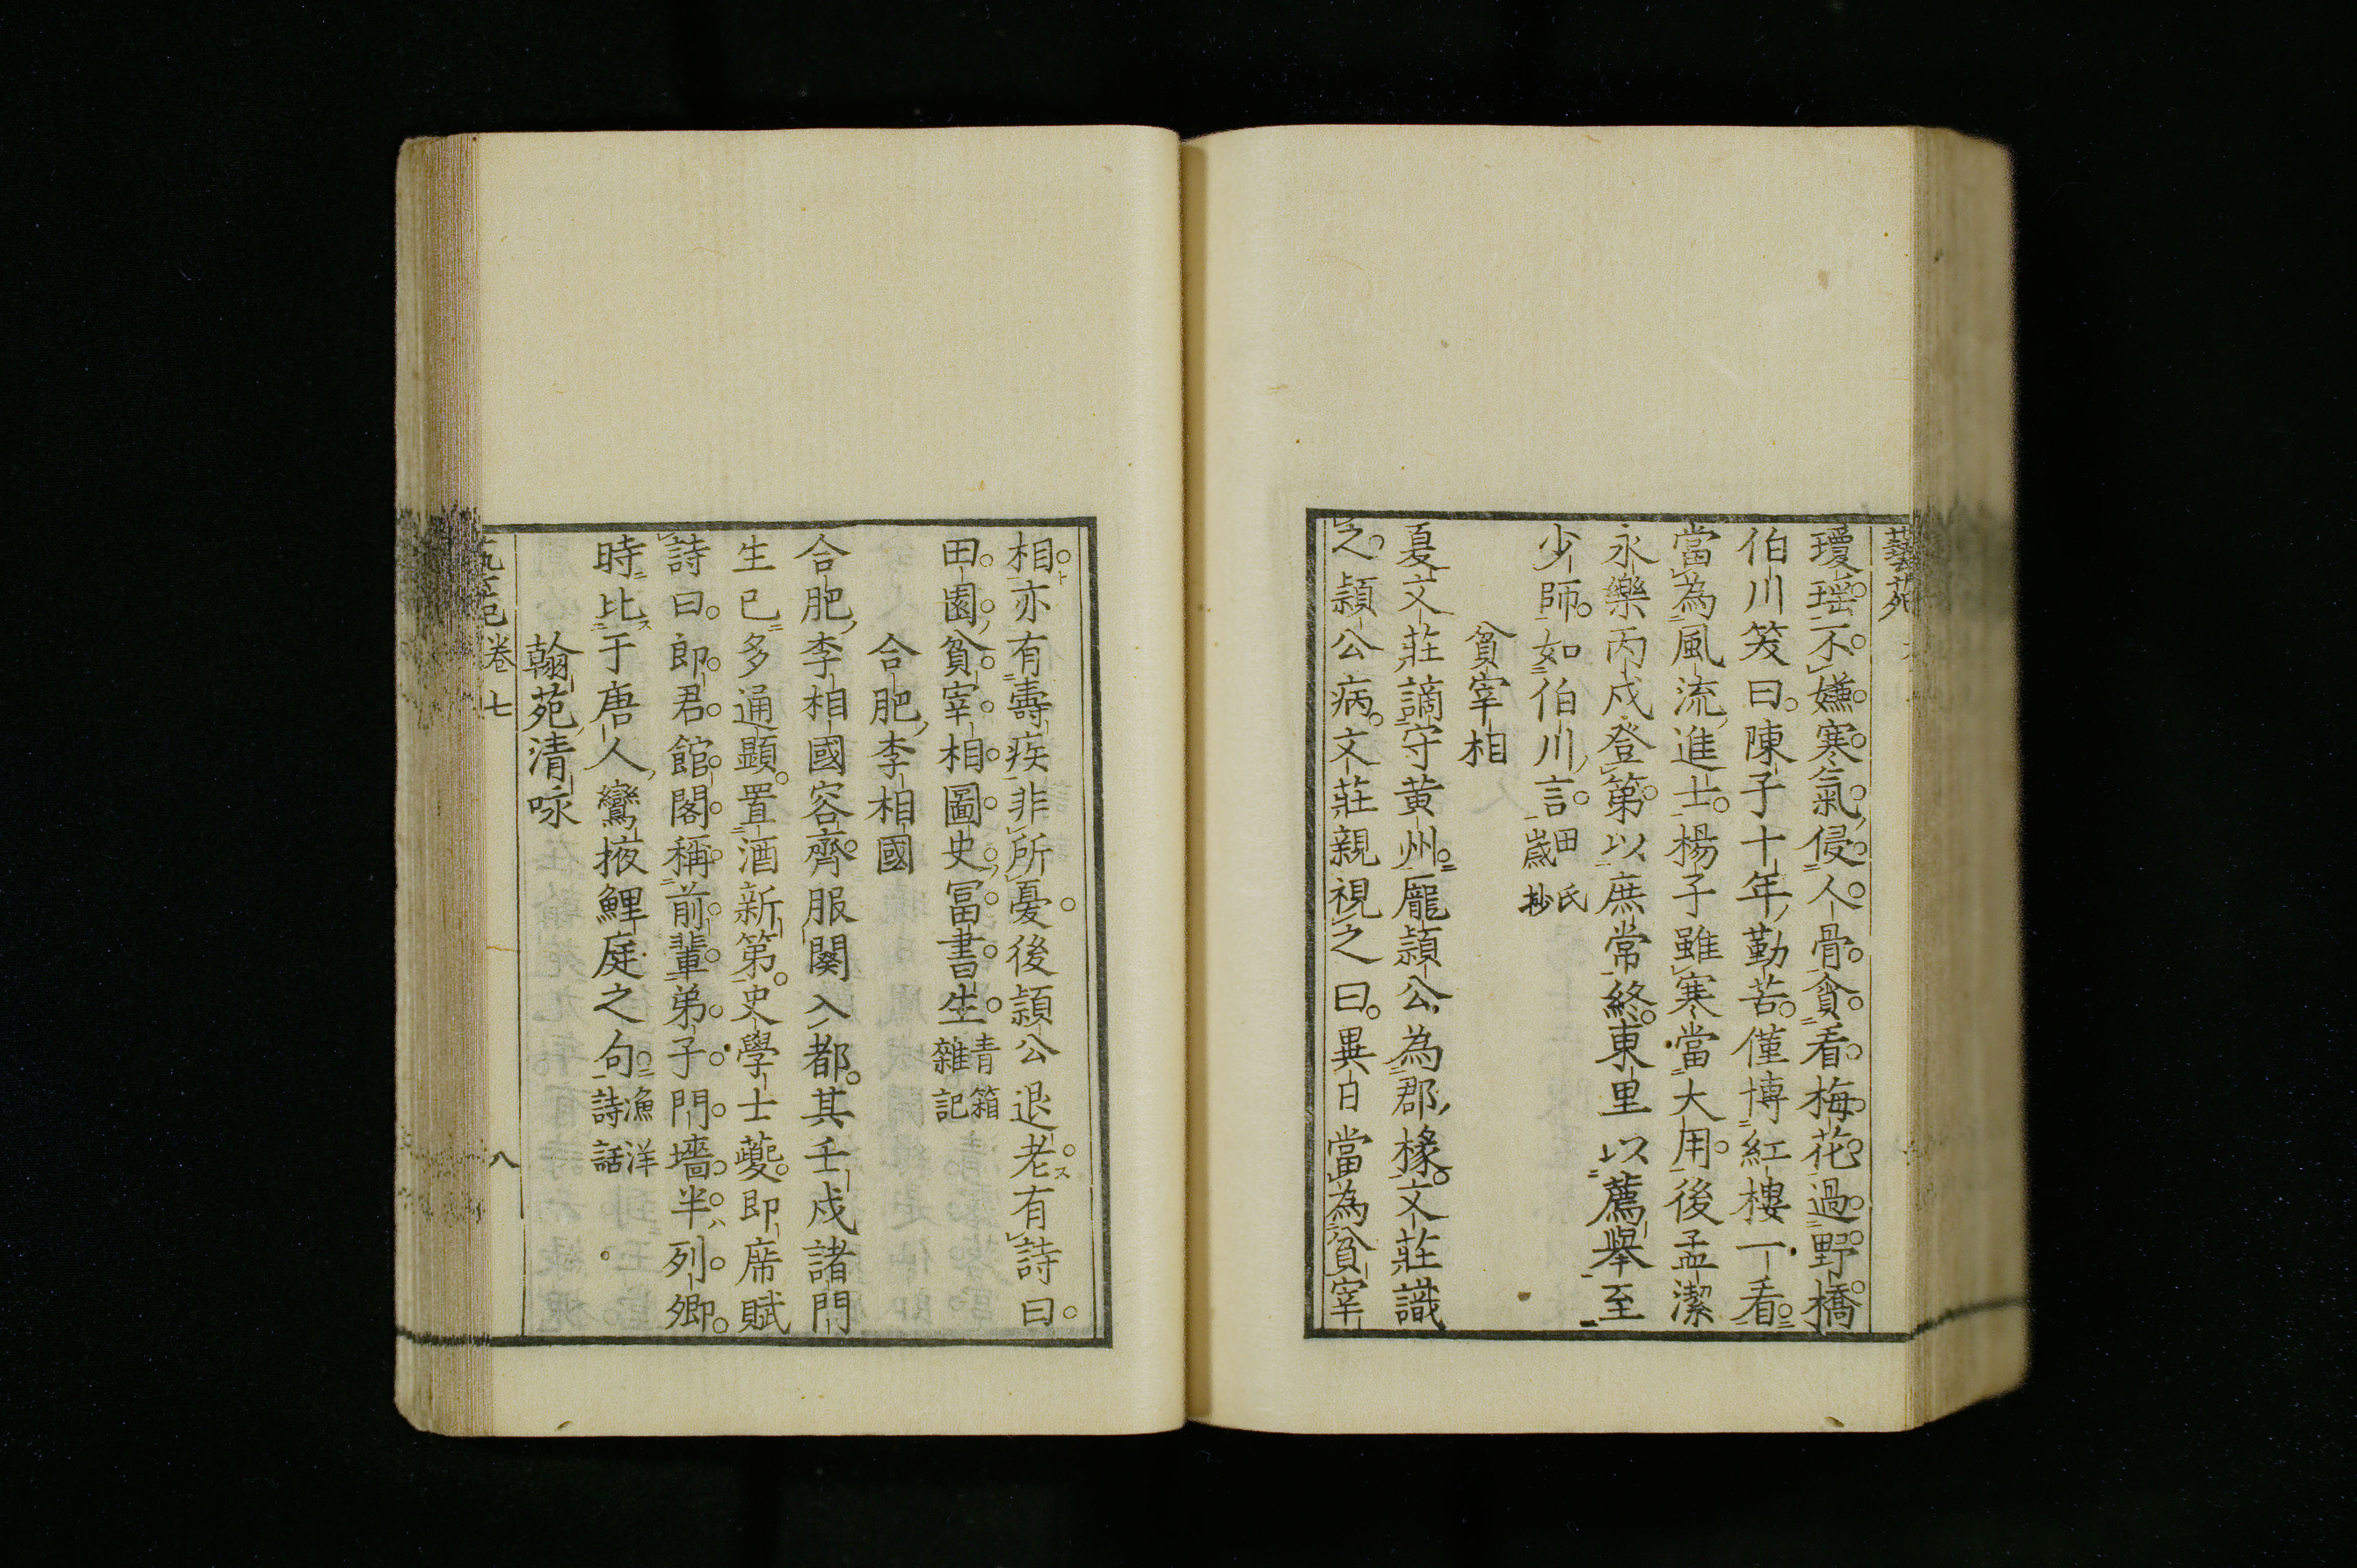 藝苑
瓊瑶不嫌寒氣侵人骨貪看梅花過野橋
伯川笑曰陳子十年勤苦僅博紅樓一看
當為風流進士楊子雖寒當大用後孟潔
永樂丙戌登第以庶常終東里以薦舉至
少師如伯川言田氏
歳抄
貧宰相
夏文莊謫守黄州龐頴公為郡掾文莊識
之頴公病文莊親視之曰異日當為貧宰
相亦有壽疾非所憂後頴公退老有詩曰
田園貧宰相圖史冨書生青箱
雜記
合肥李相國
合肥李相國容齊服闋入都其壬戍諸門
生已多通顯置酒新第史學士夔即席賦
詩曰郎君館閣稱前輩弟子門墻半列卿
時比于唐人鸞掖鯉庭之句漁洋
詩話
翰苑清咏
卷七
八